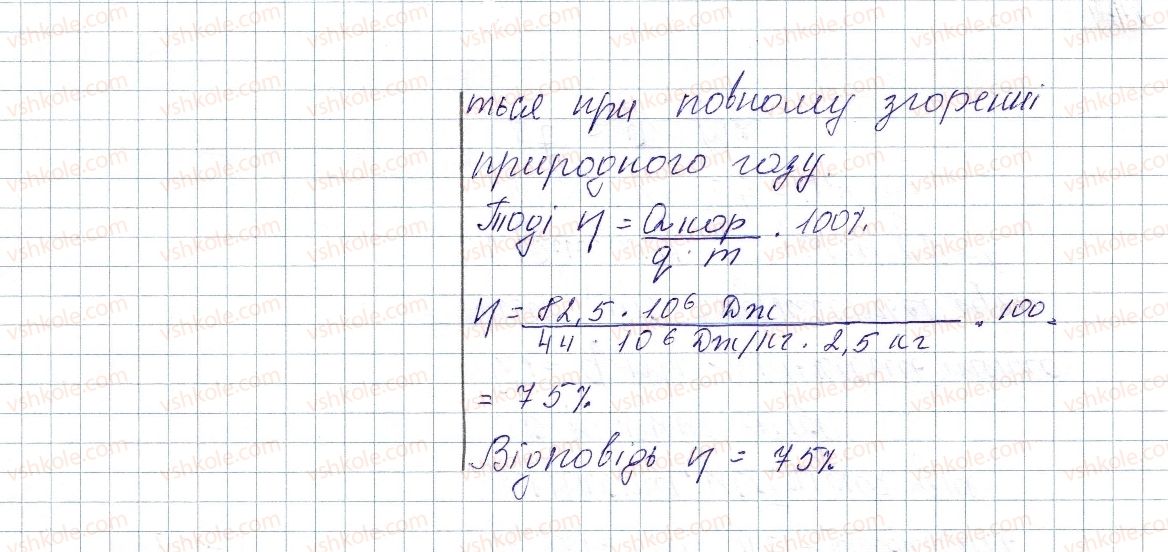 ться при повному згоренні
природного газу.
Тоді η = Qкор / q · m · 100%
η = 82,5 · 10⁶ Дж / 44 · 10⁶ Дж/кг · 2,5 кг · 100 =
= 75%
Відповідь η = 75%